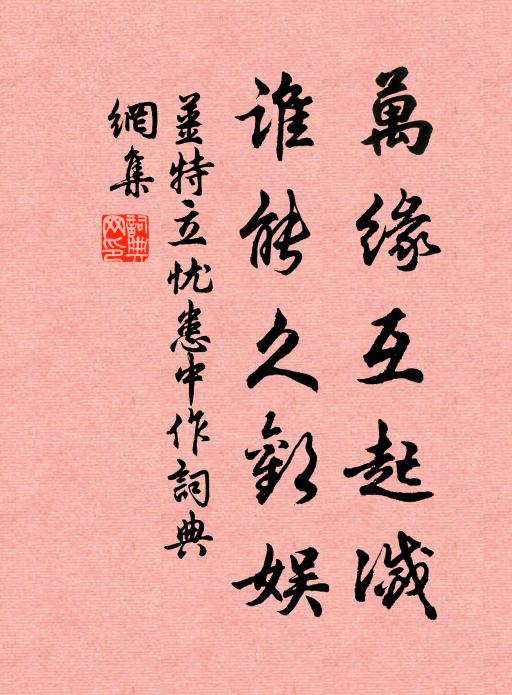 萬緣互起滅
誰能久歡娛
姜特立忧患中作詞典
網集
詞典網印